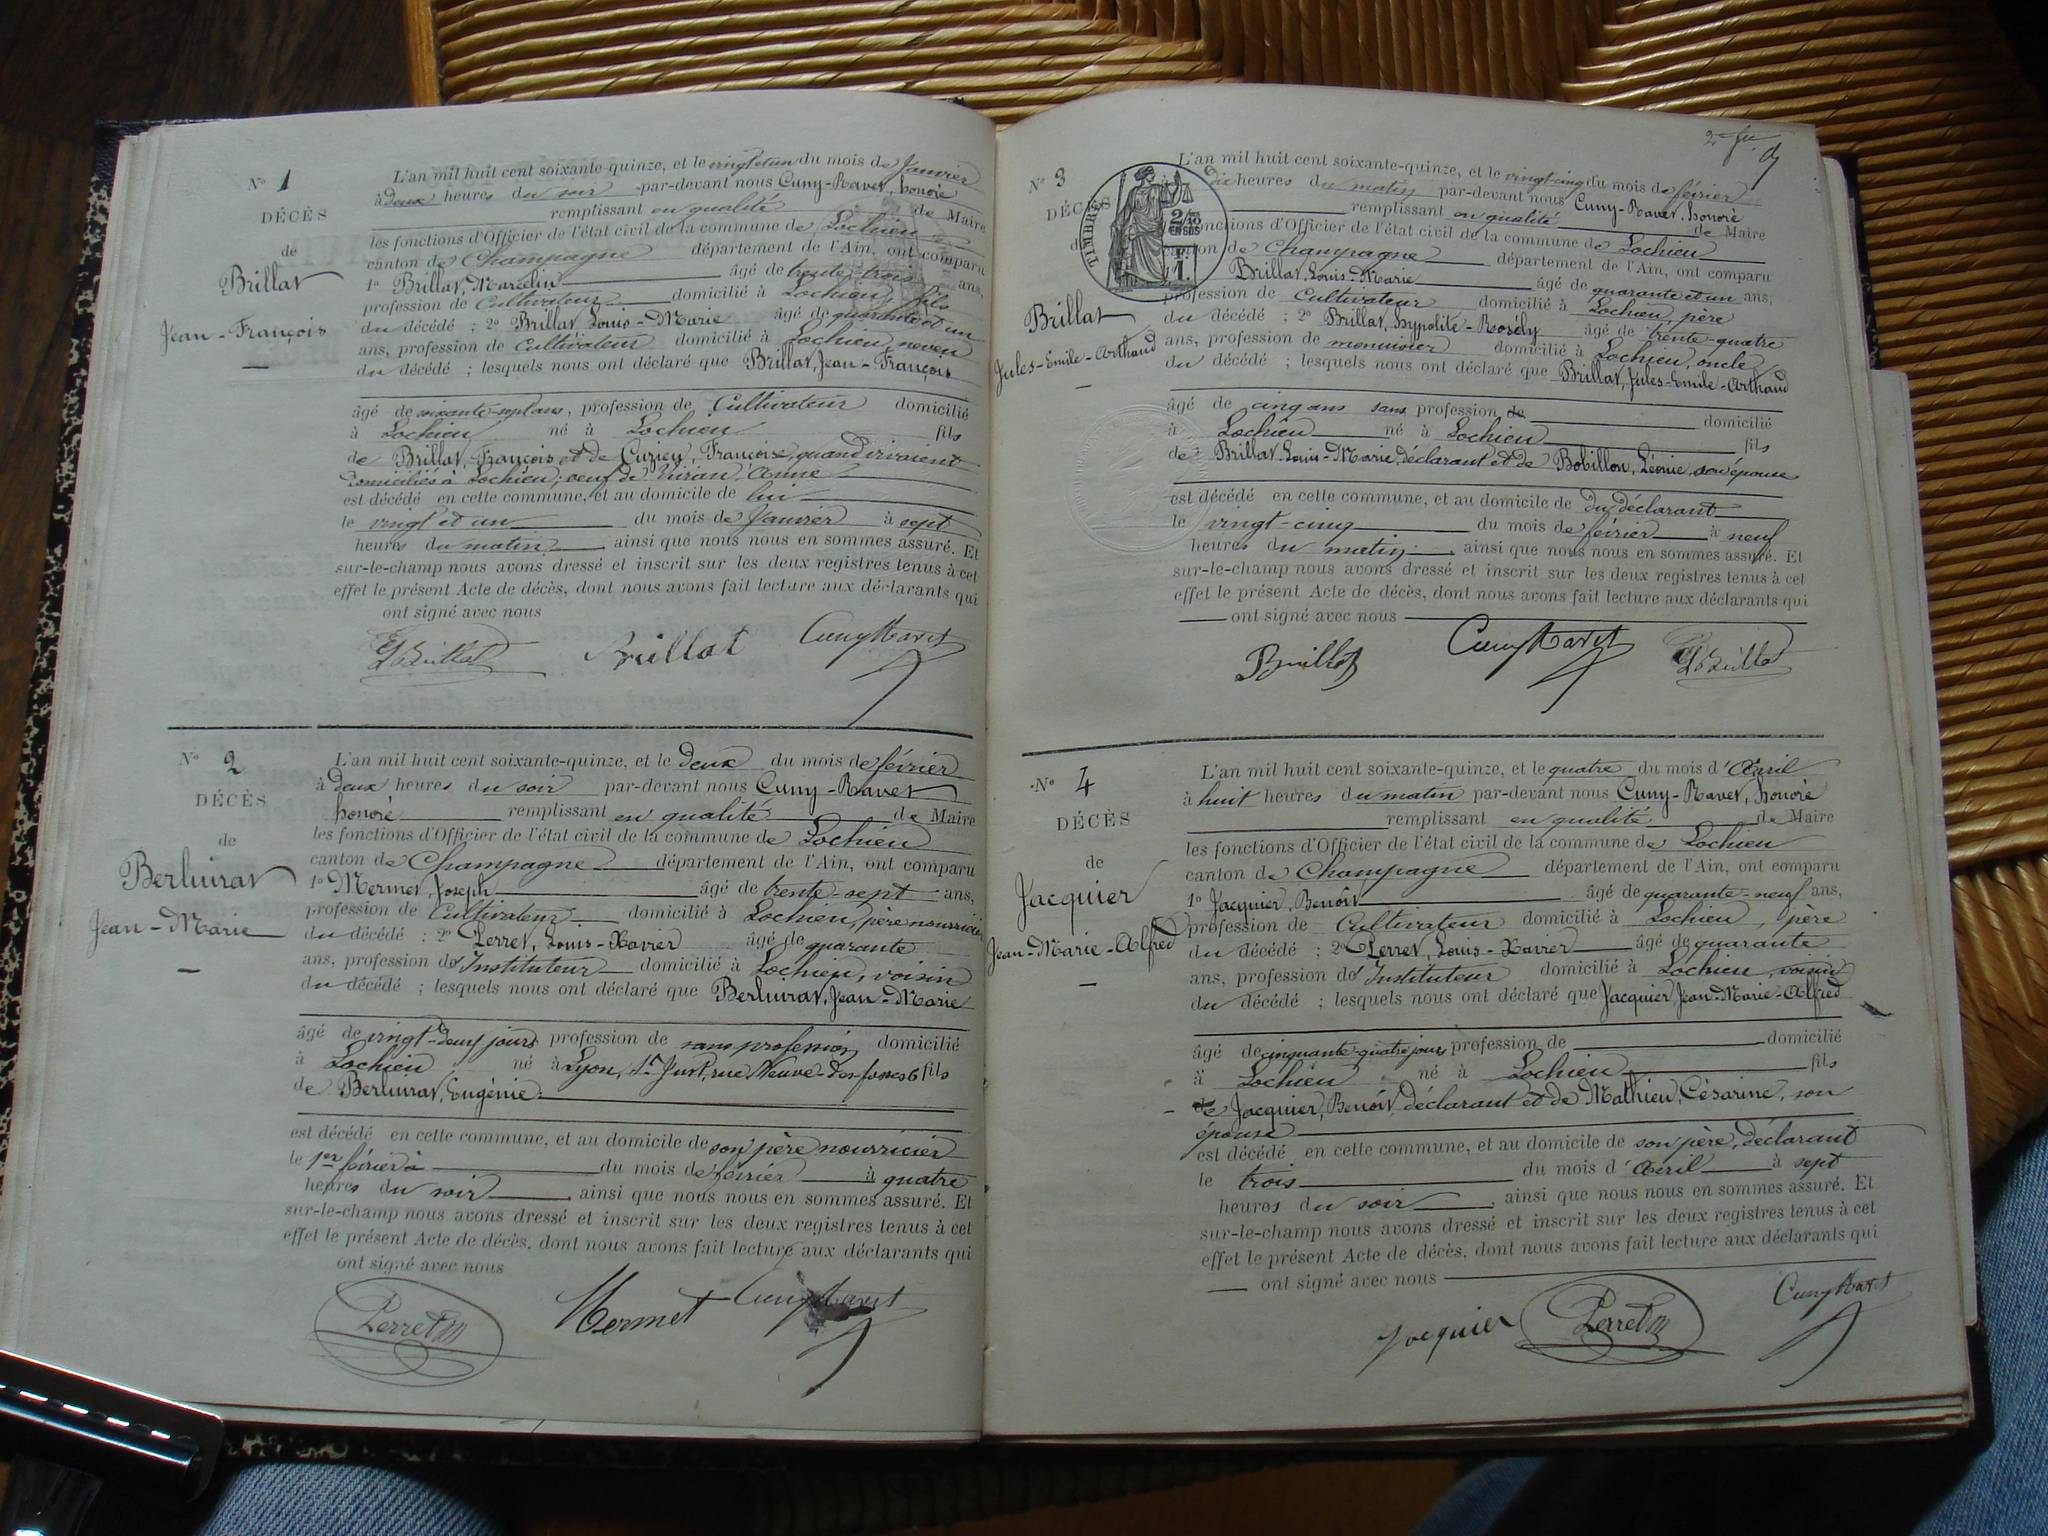 N° 1
DÉCÈS
de
Brillat
Jean-François
L'an mil huit cent soixante-quinze, et le vingt et un du mois de Janvier
à deux heures du soir par-devant nous Cuny-Ravet, honoré
remplissant en qualité de Maire
les fonctions d'Officier de l'état civil de la commune de Lochieu
canton de Champagne département de l'Ain, ont comparu
1° Brillat, Marcelin âgé de trente-trois ans,
profession de Cultivateur domicilié à Lochieu, fils
du décédé ; 2° Brillat, Louis-Marie âgé de quarante et un
ans, profession de Cultivateur domicilié à Lochieu, neveu
du décédé ; lesquels nous ont déclaré que Brillat, Jean-François
âgé de soixante-sept ans, profession de Cultivateur domicilié
à Lochieu né à Lochieu fils
de Brillat, François et de Françoise, quand vivaient
domiciliés à Lochieu, veuf de Anne
est décédé en cette commune, et au domicile de lui
le vingt et un du mois de Janvier à sept
heures du matin ainsi que nous nous en sommes assuré. Et
sur-le-champ nous avons dressé et inscrit sur les deux registres tenus à cet
effet le présent Acte de décès, dont nous avons fait lecture aux déclarants qui
ont signé avec nous
Brillat Brillat CunyRavet
N° 2
DÉCÈS
de
Berluirat
Jean-Marie
L'an mil huit cent soixante-quinze, et le deux du mois de février
à deux heures du soir par-devant nous Cuny-Ravet
honoré remplissant en qualité de Maire
les fonctions d'Officier de l'état civil de la commune de Lochieu
canton de Champagne département de l'Ain, ont comparu
1° Mermet, Joseph âgé de trente-sept ans,
profession de Cultivateur domicilié à Lochieu, père nourricier
du décédé ; 2° Perret, Louis-Xavier âgé de quarante
ans, profession de Instituteur domicilié à Lochieu, voisin
du décédé ; lesquels nous ont déclaré que Berluirat, Jean-Marie
âgé de vingt-deux jours profession de sans profession domicilié
à Lochieu né à Lyon, St Just, rue Neuve-des-fosses 6 fils
de Berluirat, Eugénie
est décédé en cette commune, et au domicile de son père nourricier
le 1er février à du mois de février à quatre
heures du soir ainsi que nous nous en sommes assuré. Et
sur-le-champ nous avons dressé et inscrit sur les deux registres tenus à cet
effet le présent Acte de décès, dont nous avons fait lecture aux déclarants qui
ont signé avec nous
Perret Mermet CunyRavet
N° 3
DÉCÈS
Brillat
Jules-Emile-Arthaud
TIMBRES
2/10
EN SUS
1
L'an mil huit cent soixante-quinze, et le vingt-cinq du mois de février
dix heures du matin par-devant nous Cuny-Ravet, honoré
remplissant en qualité de Maire
fonctions d'Officier de l'état civil de la commune de Lochieu
canton de Champagne département de l'Ain, ont comparu
Brillat, Louis-Marie âgé de quarante et un ans,
profession de Cultivateur domicilié à Lochieu, père
du décédé ; 2° Brillat, hypolite-Rosély âgé de trente-quatre
ans, profession de menuisier domicilié à Lochieu, oncle
du décédé ; lesquels nous ont déclaré que Brillat, Jules-Emile-Arthaud
âgé de cinq ans sans profession de domicilié
à Lochieu né à Lochieu fils
de Brillat Louis-Marie, déclarant et de Bobillon, Léonie, son épouse
est décédé en cette commune, et au domicile de du déclarant
le vingt-cinq du mois de février à neuf
heures du matin ainsi que nous nous en sommes assuré. Et
sur-le-champ nous avons dressé et inscrit sur les deux registres tenus à cet
effet le présent Acte de décès, dont nous avons fait lecture aux déclarants qui
ont signé avec nous
Brillat CunyRavet Brillat
N° 4
DÉCÈS
de
Jacquier
Jean-Marie-Alfred
L'an mil huit cent soixante-quinze, et le quatre du mois d'Avril
à huit heures du matin par-devant nous Cuny-Ravet, honoré
remplissant en qualité de Maire
les fonctions d'Officier de l'état civil de la commune de Lochieu
canton de Champagne département de l'Ain, ont comparu
1° Jacquier, Benoît âgé de quarante-neuf ans,
profession de Cultivateur domicilié à Lochieu, père
du décédé ; 2° Perret, Louis-Xavier âgé de quarante
ans, profession de Instituteur domicilié à Lochieu, voisin
du décédé ; lesquels nous ont déclaré que Jacquier Jean-Marie-Alfred
âgé de cinquante-quatre jours profession de domicilié
à Lochieu né à Lochieu fils
de Jacquier, Benoît, déclarant et de Mathieu, Césarine, son
épouse
est décédé en cette commune, et au domicile de son père, déclarant
le trois du mois d'Avril à sept
heures du soir ainsi que nous nous en sommes assuré. Et
sur-le-champ nous avons dressé et inscrit sur les deux registres tenus à cet
effet le présent Acte de décès, dont nous avons fait lecture aux déclarants qui
ont signé avec nous
Jacquier Perret CunyRavet